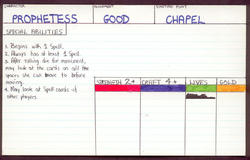 CHARACTER ALIGNMENT START POINT
PROPHETESS GOOD CHAPEL
SPECIAL ABILITIES
1. Begins with 1 Spell.
2. Always has at least 1 Spell.
3. After rolling die for movement,
may look at the cards on all the
spaces she can move to before
moving.
4. May look at Spell cards of
other players.
STRENGTH 2+ CRAFT 4+ LIVES GOLD